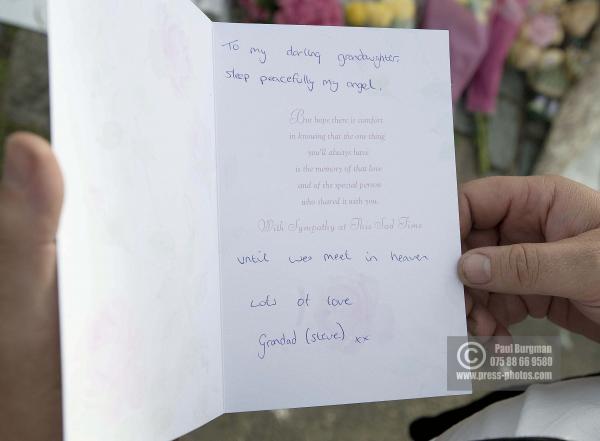 To my darling grandaughter,
sleep peacefully my angel.
But hope there is comfort
in knowing that the one thing
you'll always have
is the memory of that love
and of the special person
who shared it with you.
With Sympathy at This Sad Time
until wes meet in heaven
Lots of love
Grandad (steve) xx
© Paul Burgman
075 88 66 9580
www.press-photos.com